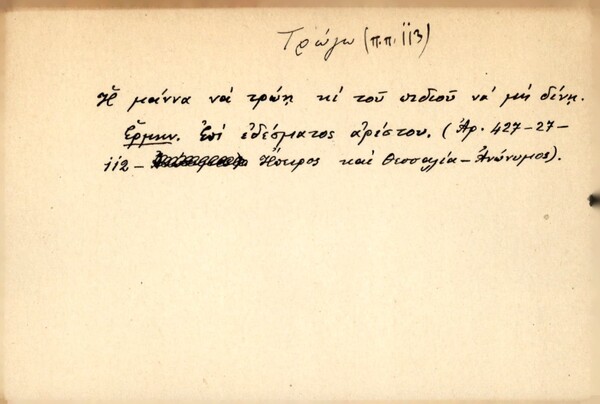 Τρώγω (π.π. 113)
Ἡ μάννα νά τρώῃ κί τοῦ πιδιοῦ νά μή δίνῃ.
Ἑρμην. Ἐπί ἐδέσματος ἀρίστου. (Ἀρ. 427-27-
112- Ἤπειρος καί Θεσσαλία-Ἀνώνυμος).